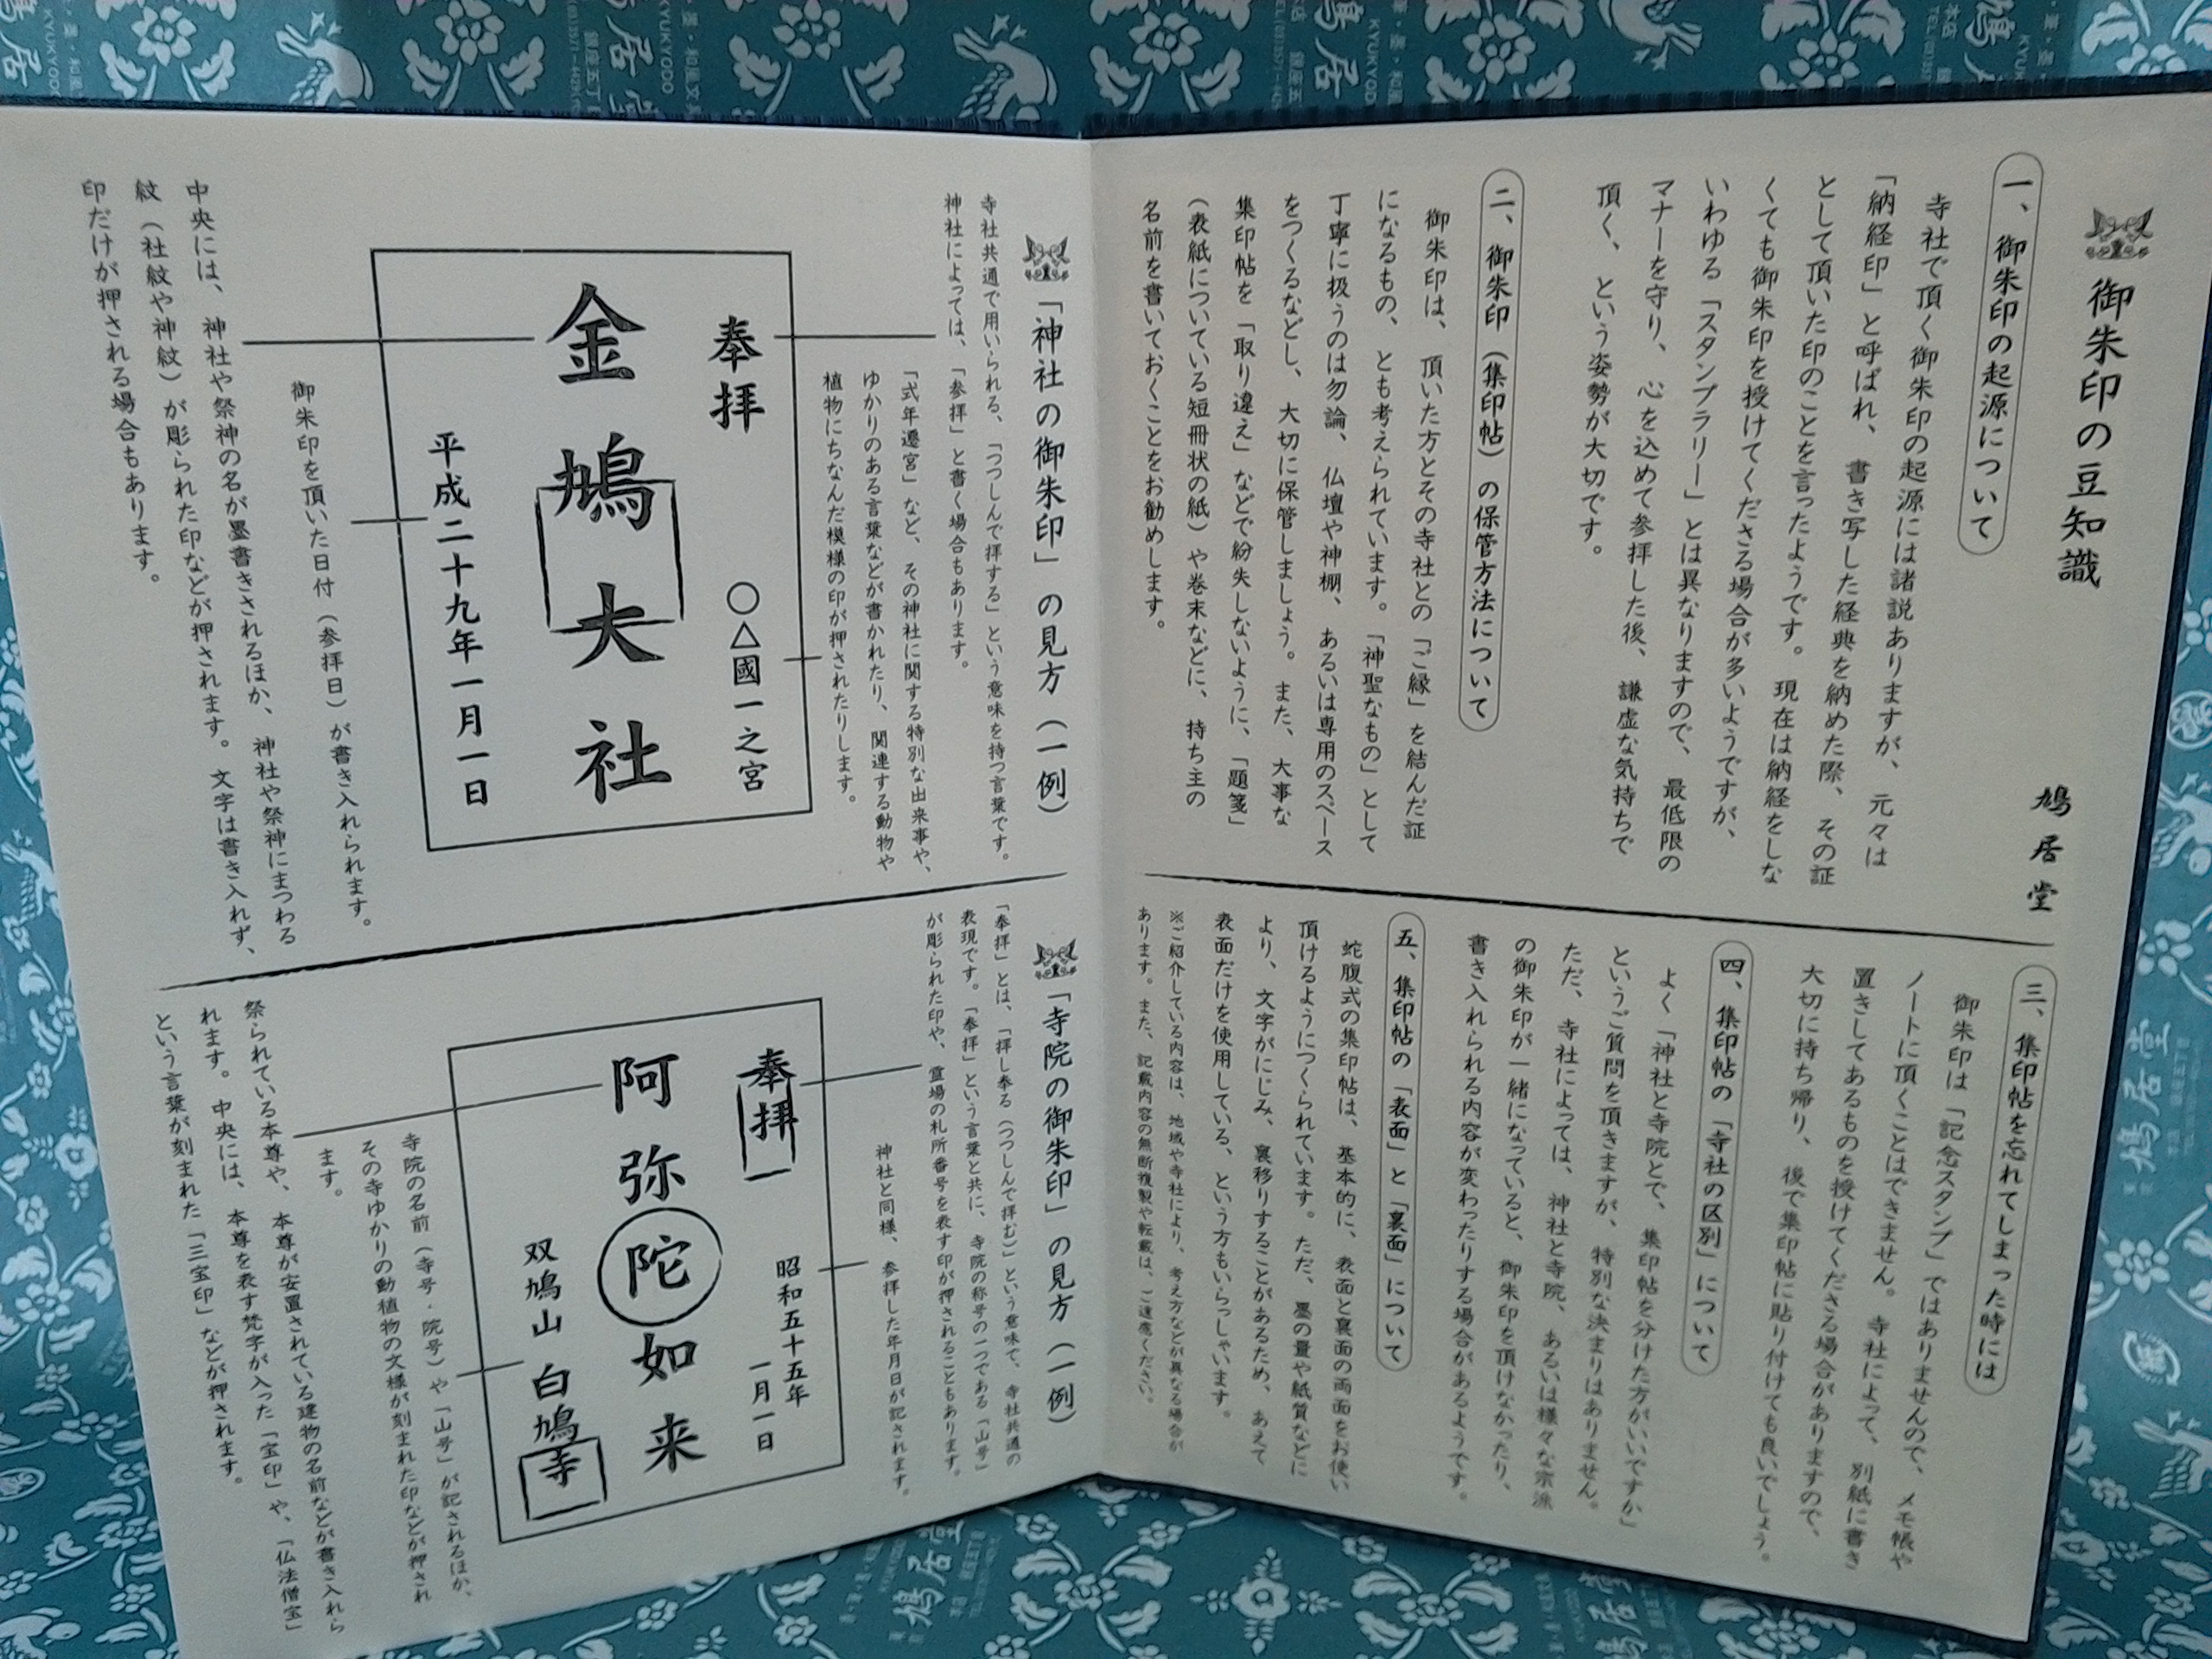 御朱印の豆知識
鳩居堂
一、御朱印の起源について
寺社で頂く御朱印の起源には諸説ありますが、元々は
「納経印」と呼ばれ、書き写した経典を納めた際、その証
として頂いた印のことを言ったようです。現在は納経をしな
くても御朱印を授けてくださる場合が多いようですが、
いわゆる「スタンプラリー」とは異なりますので、最低限の
マナーを守り、心を込めて参拝した後、謙虚な気持ちで
頂く、という姿勢が大切です。
二、御朱印(集印帖)の保管方法について
御朱印は、頂いた方とその寺社との「ご縁」を結んだ証
になるもの、とも考えられています。「神聖なもの」として
丁寧に扱うのは勿論、仏壇や神棚、あるいは専用のスペース
をつくるなどし、大切に保管しましょう。また、大事な
集印帖を「取り違え」などで紛失しないように、「題箋」
(表紙についている短冊状の紙)や巻末などに、持ち主の
名前を書いておくことをお勧めします。
三、集印帖を忘れてしまった時には
御朱印は「記念スタンプ」ではありませんので、メモ帳や
ノートに頂くことはできません。寺社によって、別紙に書き
置きしてあるものを授けてくださる場合がありますので、
大切に持ち帰り、後で集印帖に貼り付けても良いでしょう。
四、集印帖の「寺社の区別」について
よく「神社と寺院とで、集印帖を分けた方がいいですか」
というご質問を頂きますが、特別な決まりはありません。
ただ、寺社によっては、神社と寺院、あるいは様々な宗派
の御朱印が一緒になっていると、御朱印を頂けなかったり、
書き入れられる内容が変わったりする場合があるようです。
五、集印帖の「表面」と「裏面」について
蛇腹式の集印帖は、基本的に、表面と裏面の両面をお使い
頂けるようにつくられています。ただ、墨の量や紙質などに
より、文字がにじみ、裏移りすることがあるため、あえて
表面だけを使用している、という方もいらっしゃいます。
※ご紹介している内容は、地域や寺社により、考え方などが異なる場合が
あります。また、記載内容の無断複製や転載は、ご遠慮ください。
「神社の御朱印」の見方(一例)
寺社共通で用いられる、「つつしんで拝する」という意味を持つ言葉です。
神社によっては、「参拝」と書く場合もあります。
「式年遷宮」など、その神社に関する特別な出来事や、
ゆかりのある言葉などが書かれたり、関連する動物や
植物にちなんだ模様の印が押されたりします。
奉拝
○△國一之宮
金鳩大社
平成二十九年一月一日
御朱印を頂いた日付(参拝日)が書き入れられます。
中央には、神社や祭神の名が墨書きされるほか、神社や祭神にまつわる
紋(社紋や神紋)が彫られた印などが押されます。文字は書き入れず、
印だけが押される場合もあります。
「寺院の御朱印」の見方(一例)
「奉拝」とは、「拝し奉る(つつしんで拝む)」という意味で、寺社共通の
表現です。「奉拝」という言葉と共に、寺院の称号の一つである「山号」
が彫られた印や、霊場の札所番号を表す印が押されることもあります。
神社と同様、参拝した年月日が記されます。
奉拝一
昭和五十五年
一月一日
阿弥陀如来
双鳩山 白鳩寺
寺院の名前(寺号・院号)や「山号」が記されるほか、
その寺ゆかりの動植物の文様が刻まれた印などが押され
ます。
祭られている本尊や、本尊が安置されている建物の名前などが書き入れら
れます。中央には、本尊を表す梵字が入った「宝印」や、「仏法僧宝」
という言葉が刻まれた「三宝印」などが押されます。
鳩居堂
KYUKYODO